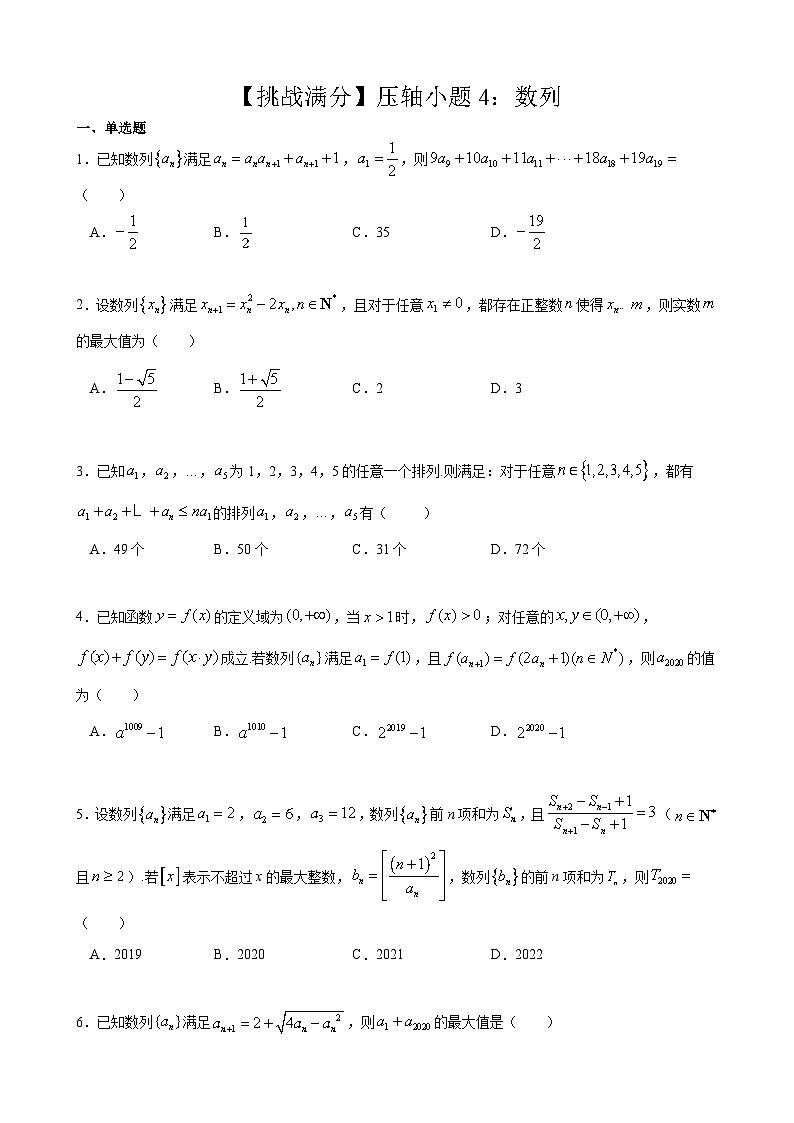 【挑战满分】压轴小题4：数列
一、单选题
1．已知数列{aₙ}满足aₙ = aₙaₙ₊₁ + aₙ₊₁ + 1，a₁ = 1/2，则9a₉ + 10a₁₀ + 11a₁₁ + ⋯ + 18a₁₈ + 19a₁₉ =
（　　）
A．−1/2　B．1/2　C．35　D．−19/2
2．设数列{xₙ}满足xₙ₊₁ = xₙ² − 2xₙ, n ∈ N*，且对于任意x₁ ≠ 0，都存在正整数n使得xₙ.. m，则实数m
的最大值为（　　）
A．(1−√5)/2　B．(1+√5)/2　C．2　D．3
3．已知a₁，a₂，…，a₅为1，2，3，4，5的任意一个排列.则满足：对于任意n ∈ {1,2,3,4,5}，都有
a₁ + a₂ + L + aₙ ≤ na₁的排列a₁，a₂，…，a₅有（　　）
A．49个　B．50个　C．31个　D．72个
4．已知函数y = f(x)的定义域为(0,+∞)，当x > 1时，f(x) > 0；对任意的x, y ∈ (0,+∞)，
f(x) + f(y) = f(x·y)成立.若数列{aₙ}满足a₁ = f(1)，且f(aₙ₊₁) = f(2aₙ + 1)(n ∈ N*)，则a₂₀₂₀的值
为（　　）
A．a¹⁰⁰⁹ − 1　B．a¹⁰¹⁰ − 1　C．2²⁰¹⁹ − 1　D．2²⁰²⁰ − 1
5．设数列{aₙ}满足a₁ = 2，a₂ = 6，a₃ = 12，数列{aₙ}前n项和为Sₙ，且(Sₙ₊₂ − Sₙ₋₁ + 1)/(Sₙ₊₁ − Sₙ + 1) = 3（n ∈ N⁺
且n ≥ 2）.若[x]表示不超过x的最大整数，bₙ = [(n+1)²/aₙ]，数列{bₙ}的前n项和为Tₙ，则T₂₀₂₀ =
（　　）
A．2019　B．2020　C．2021　D．2022
6．已知数列{aₙ}满足aₙ₊₁ = 2 + √(4aₙ − aₙ²)，则a₁ + a₂₀₂₀的最大值是（　　）